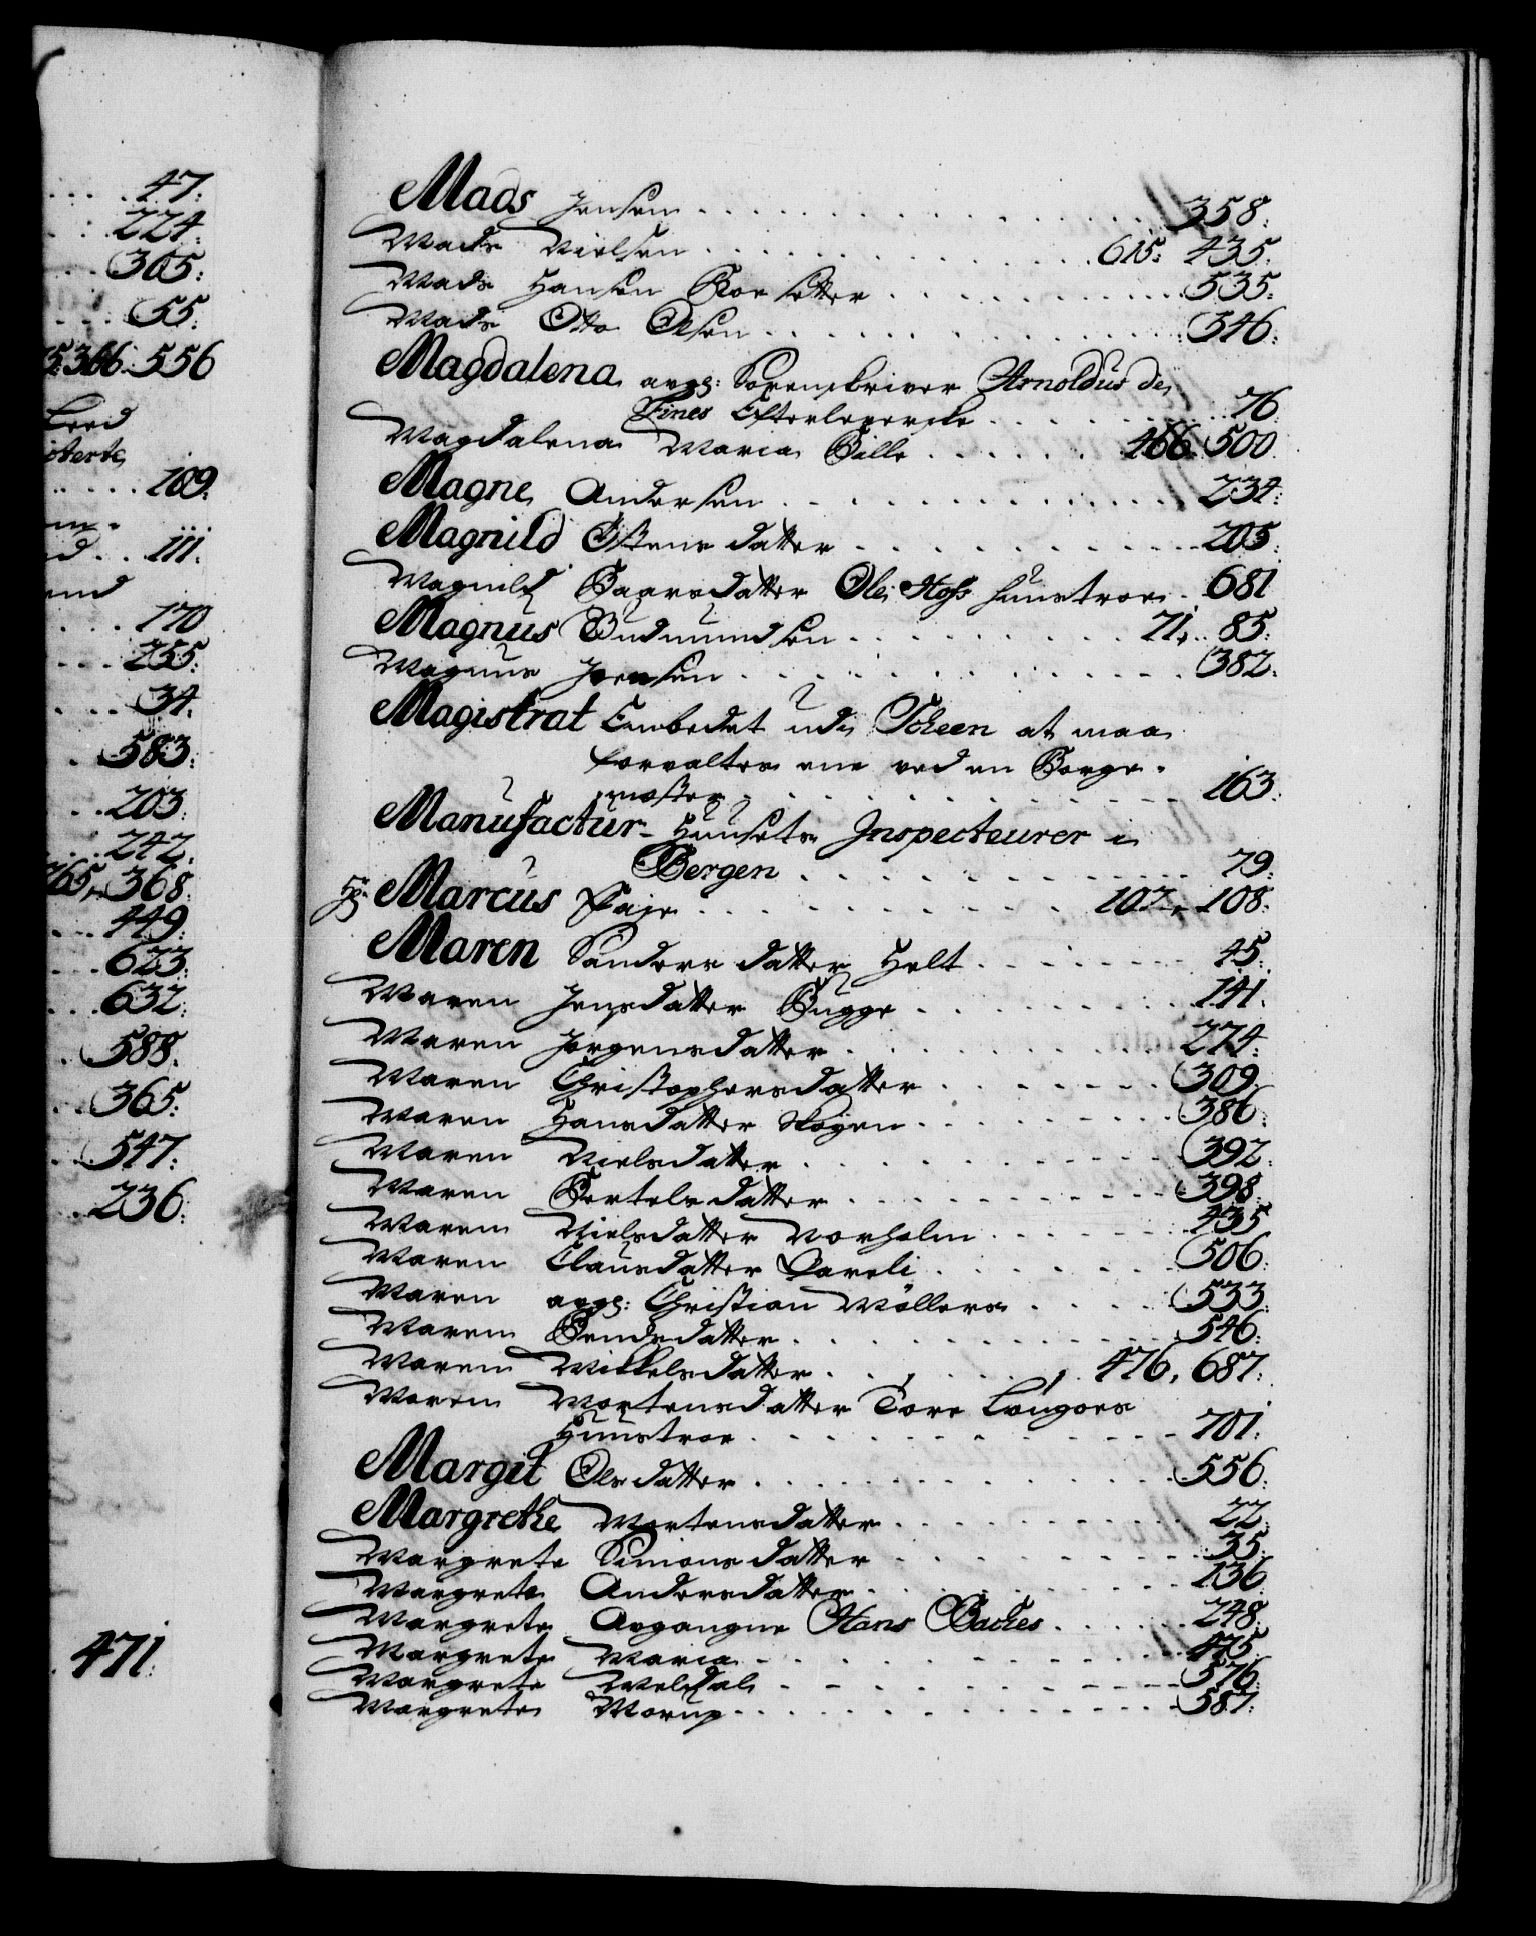 47:
224:
365:
55:
5:366. 556
Leed
109:
111.
end
170
255:
34.
583:
203.
242.
765, 368:
449:
623:
632:
588.
365:
547:
236:
471:
Mads Jensen . . . 358:
Mads Nielsen . . . 615: 435:
Mads Hansen . . . 535:
Mads Otto Olsen . . . 546:
Magdalena afg: Sorenskriver Arnoldus de
Fines Efterleverske . . . 76
Magdalena Maria Bille . . . 466. 500
Magne Andersen . . . 234:
Magnild Østens datter . . . 205.
Magnild Baarsdatter Ole Hofs Huustroe . 681
Magnus Gudmundsen . . . 71, 85:
Magnus Joensen . . . 382.
Magistrat Embedet udi Scheen at maa
forvaltes ene ved en Borge-
mester . . . 163:
Manufactur-Huusets Inspecteurer i
Bergen . . . 79:
Hr: Marcus Paje . . . 107, 108:
Maren Sanders datter Holt . . . 45.
Maren Jensdatter Bugge . . . 141.
Maren Jørgensdatter . . . 274:
Maren Christophersdatter . . . 309.
Maren Hansdatter Skøyen . . . 386:
Maren Nielsdatter . . . 392.
Maren Bertelsdatter . . . 398.
Maren Nielsdatter Norholm . . . 435
Maren Clausdatter Pareli . . . 506:
Maren afg: Christian Møllers . . . 533.
Maren Bendsdatter . . . 546:
Maren Mikkelsdatter . . . 476, 687:
Maren Mortensdatter Tore Langoes
Huustroe . . . 701.
Margit Olsdatter . . . 556:
Margrethe Mortensdatter . . . 22:
Margrete Simonsdatter . . . 35.
Margrete Andersdatter . . . 136
Margrete Afgangne Hans Baches . . . 248:
Margrete Maria . . . 475.
Margrete Meldal . . . 576.
Margrete Morup . . . 587: